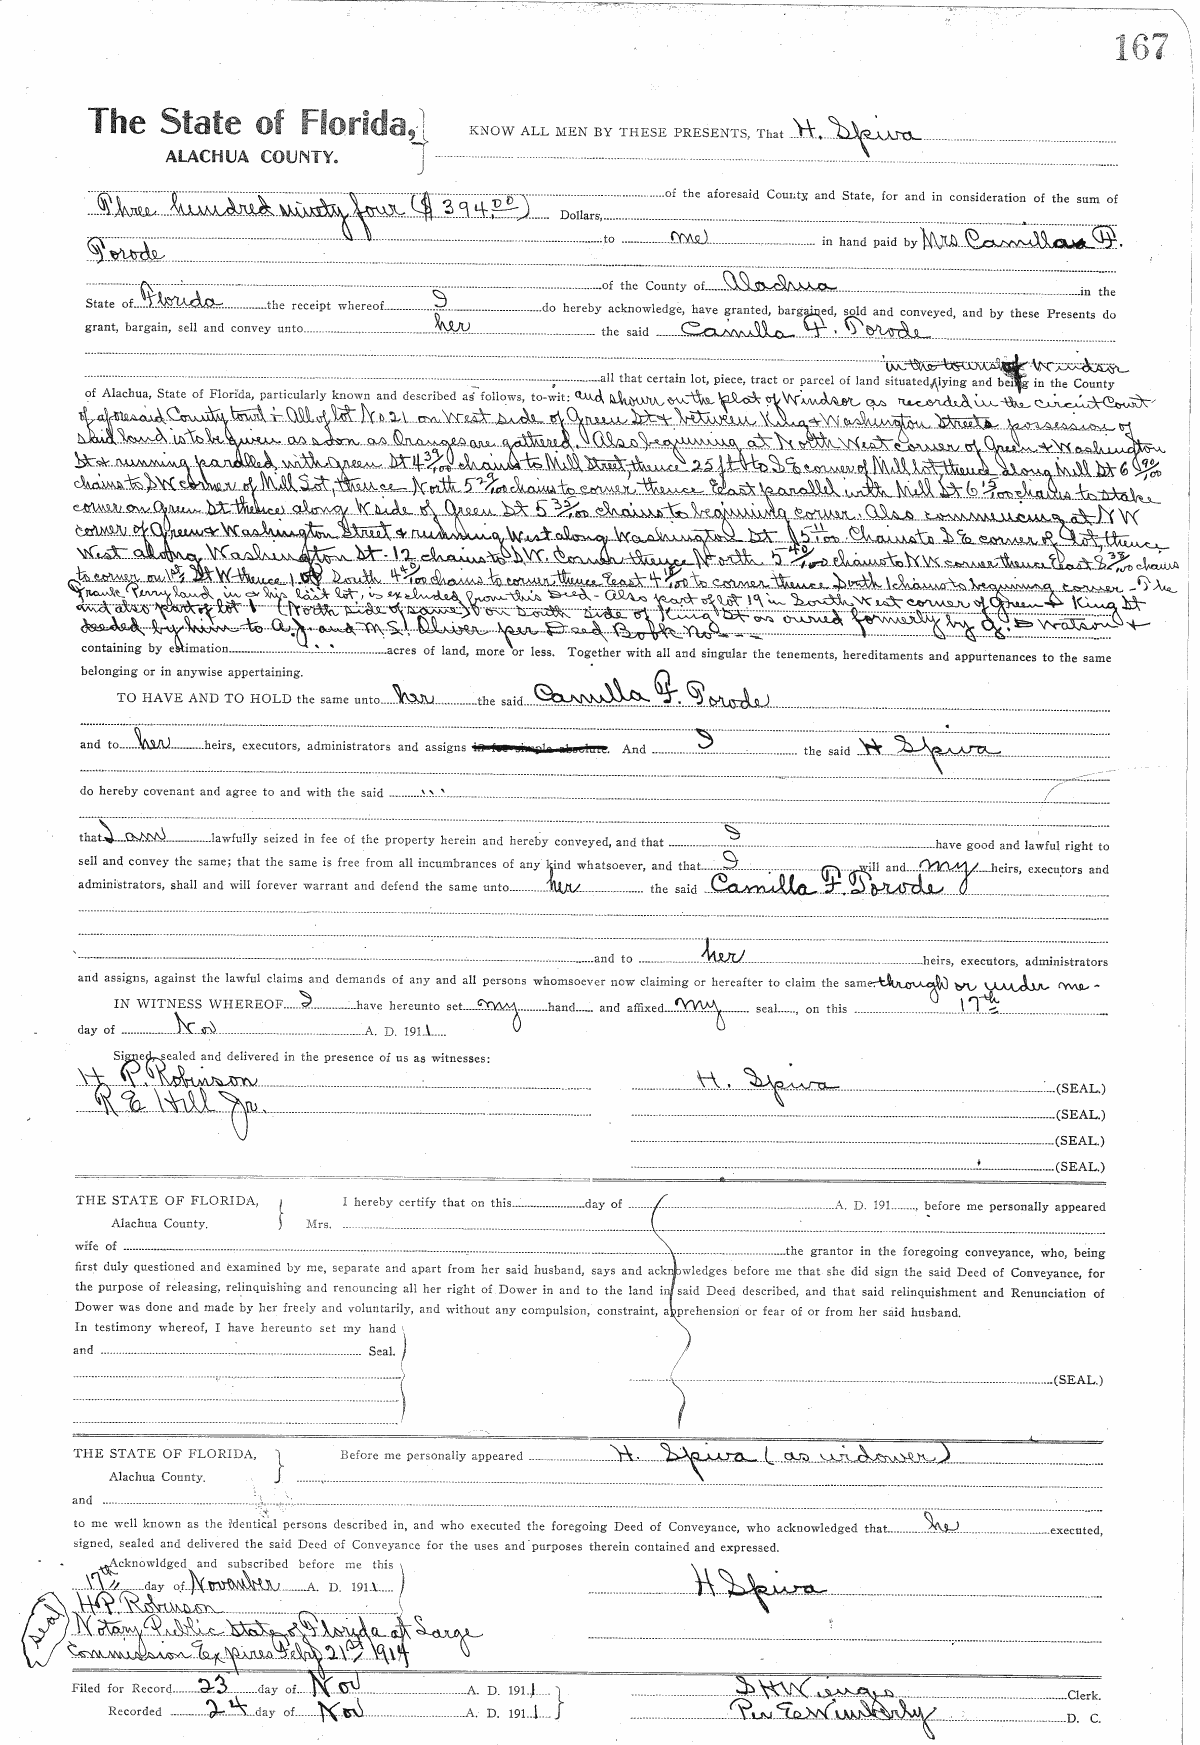 167
The State of Florida,
ALACHUA COUNTY.
KNOW ALL MEN BY THESE PRESENTS, That H. Spiva
of the aforesaid County and State, for and in consideration of the sum of
Three hundred ninety four ($394.00) Dollars,
to me in hand paid by Mrs Camilla F.
Porode
of the County of Alachua in the
State of Florida the receipt whereof I do hereby acknowledge, have granted, bargained, sold and conveyed, and by these Presents do
grant, bargain, sell and convey unto her the said Camilla F. Porode
in the town of Windsor
all that certain lot, piece, tract or parcel of land situated, lying and being in the County
of Alachua, State of Florida, particularly known and described as follows, to-wit: and shown on the plat of Windsor as recorded in the circuit Court
of aforesaid County to wit:- All of lot No. 21 on West side of Green St & between King & Washington Streets possession of
said land is to be given as soon as Oranges are gathered. Also beginning at North West corner of Green & Washington
St & running parallel with Green St 4 39/100 chains to Mill Street, thence 25 ft to S E corner of Mill lot thence along Mill St 6 90/100
chains to SW corner of Mill Lot, thence North 5 29/100 chains to corner thence East parallel with Mill St 6 15/100 chains to stake
corner on Green St thence along W side of Green St 5 33/100 chains to beginning corner. Also commencing at NW
corner of Green & Washington Street & running West along Washington St 15 11/100 Chains to S E corner of lot, thence
West along Washington St. 12 chains to S.W. Corner thence North 5 40/100 chains to NW corner thence East 8 33/100 chains
to corner on 1st St W thence South 4 40/100 chains to corner thence East 4 /100 to corner thence South 1 chains to beginning corner - The
Frank Perry land in this last lot, is excluded from this Deed - Also part of lot 19 in South West corner of Green & King St
and also part of lot 1 (North side of same) on South side of King St as owned formerly by J. D Watson &
deeded by him to A.J. and M.S. Oliver per Deed Book No - - -
containing by estimation . . . acres of land, more or less. Together with all and singular the tenements, hereditaments and appurtenances to the same
belonging or in anywise appertaining.
TO HAVE AND TO HOLD the same unto her the said Camilla F. Porode
and to her heirs, executors, administrators and assigns in fee simple absolute. And I the said H Spiva
do hereby covenant and agree to and with the said . . .
that I am lawfully seized in fee of the property herein and hereby conveyed, and that I have good and lawful right to
sell and convey the same; that the same is free from all incumbrances of any kind whatsoever, and that I will and my heirs, executors and
administrators, shall and will forever warrant and defend the same unto her the said Camilla F. Porode
and to her heirs, executors, administrators
and assigns, against the lawful claims and demands of any and all persons whomsoever now claiming or hereafter to claim the same through or under me -
IN WITNESS WHEREOF I have hereunto set my hand and affixed my seal, on this 17th
day of Nov A. D. 1911
Signed, sealed and delivered in the presence of us as witnesses:
H. P. Robinson
R E Hill Jr.
H. Spiva (SEAL.)
(SEAL.)
(SEAL.)
(SEAL.)
THE STATE OF FLORIDA,
Alachua County.
I hereby certify that on this day of A. D. 191 , before me personally appeared
Mrs.
wife of the grantor in the foregoing conveyance, who, being
first duly questioned and examined by me, separate and apart from her said husband, says and acknowledges before me that she did sign the said Deed of Conveyance, for
the purpose of releasing, relinquishing and renouncing all her right of Dower in and to the land in said Deed described, and that said relinquishment and Renunciation of
Dower was done and made by her freely and voluntarily, and without any compulsion, constraint, apprehension or fear of or from her said husband.
In testimony whereof, I have hereunto set my hand
and Seal.
(SEAL.)
THE STATE OF FLORIDA,
Alachua County.
Before me personally appeared H. Spiva (as widower)
and
to me well known as the identical persons described in, and who executed the foregoing Deed of Conveyance, who acknowledged that he executed,
signed, sealed and delivered the said Deed of Conveyance for the uses and purposes therein contained and expressed.
Acknowldged and subscribed before me this
17th day of November A. D. 1911
H Spiva
H.P. Robinson
seal
Notary Public State of Florida at Large
Commission Expires Feby 21st 1914
Filed for Record 23 day of Nov A. D. 1911
Recorded 24 day of Nov A. D. 1911
S H Wienges Clerk.
Per E Wimberly D. C.